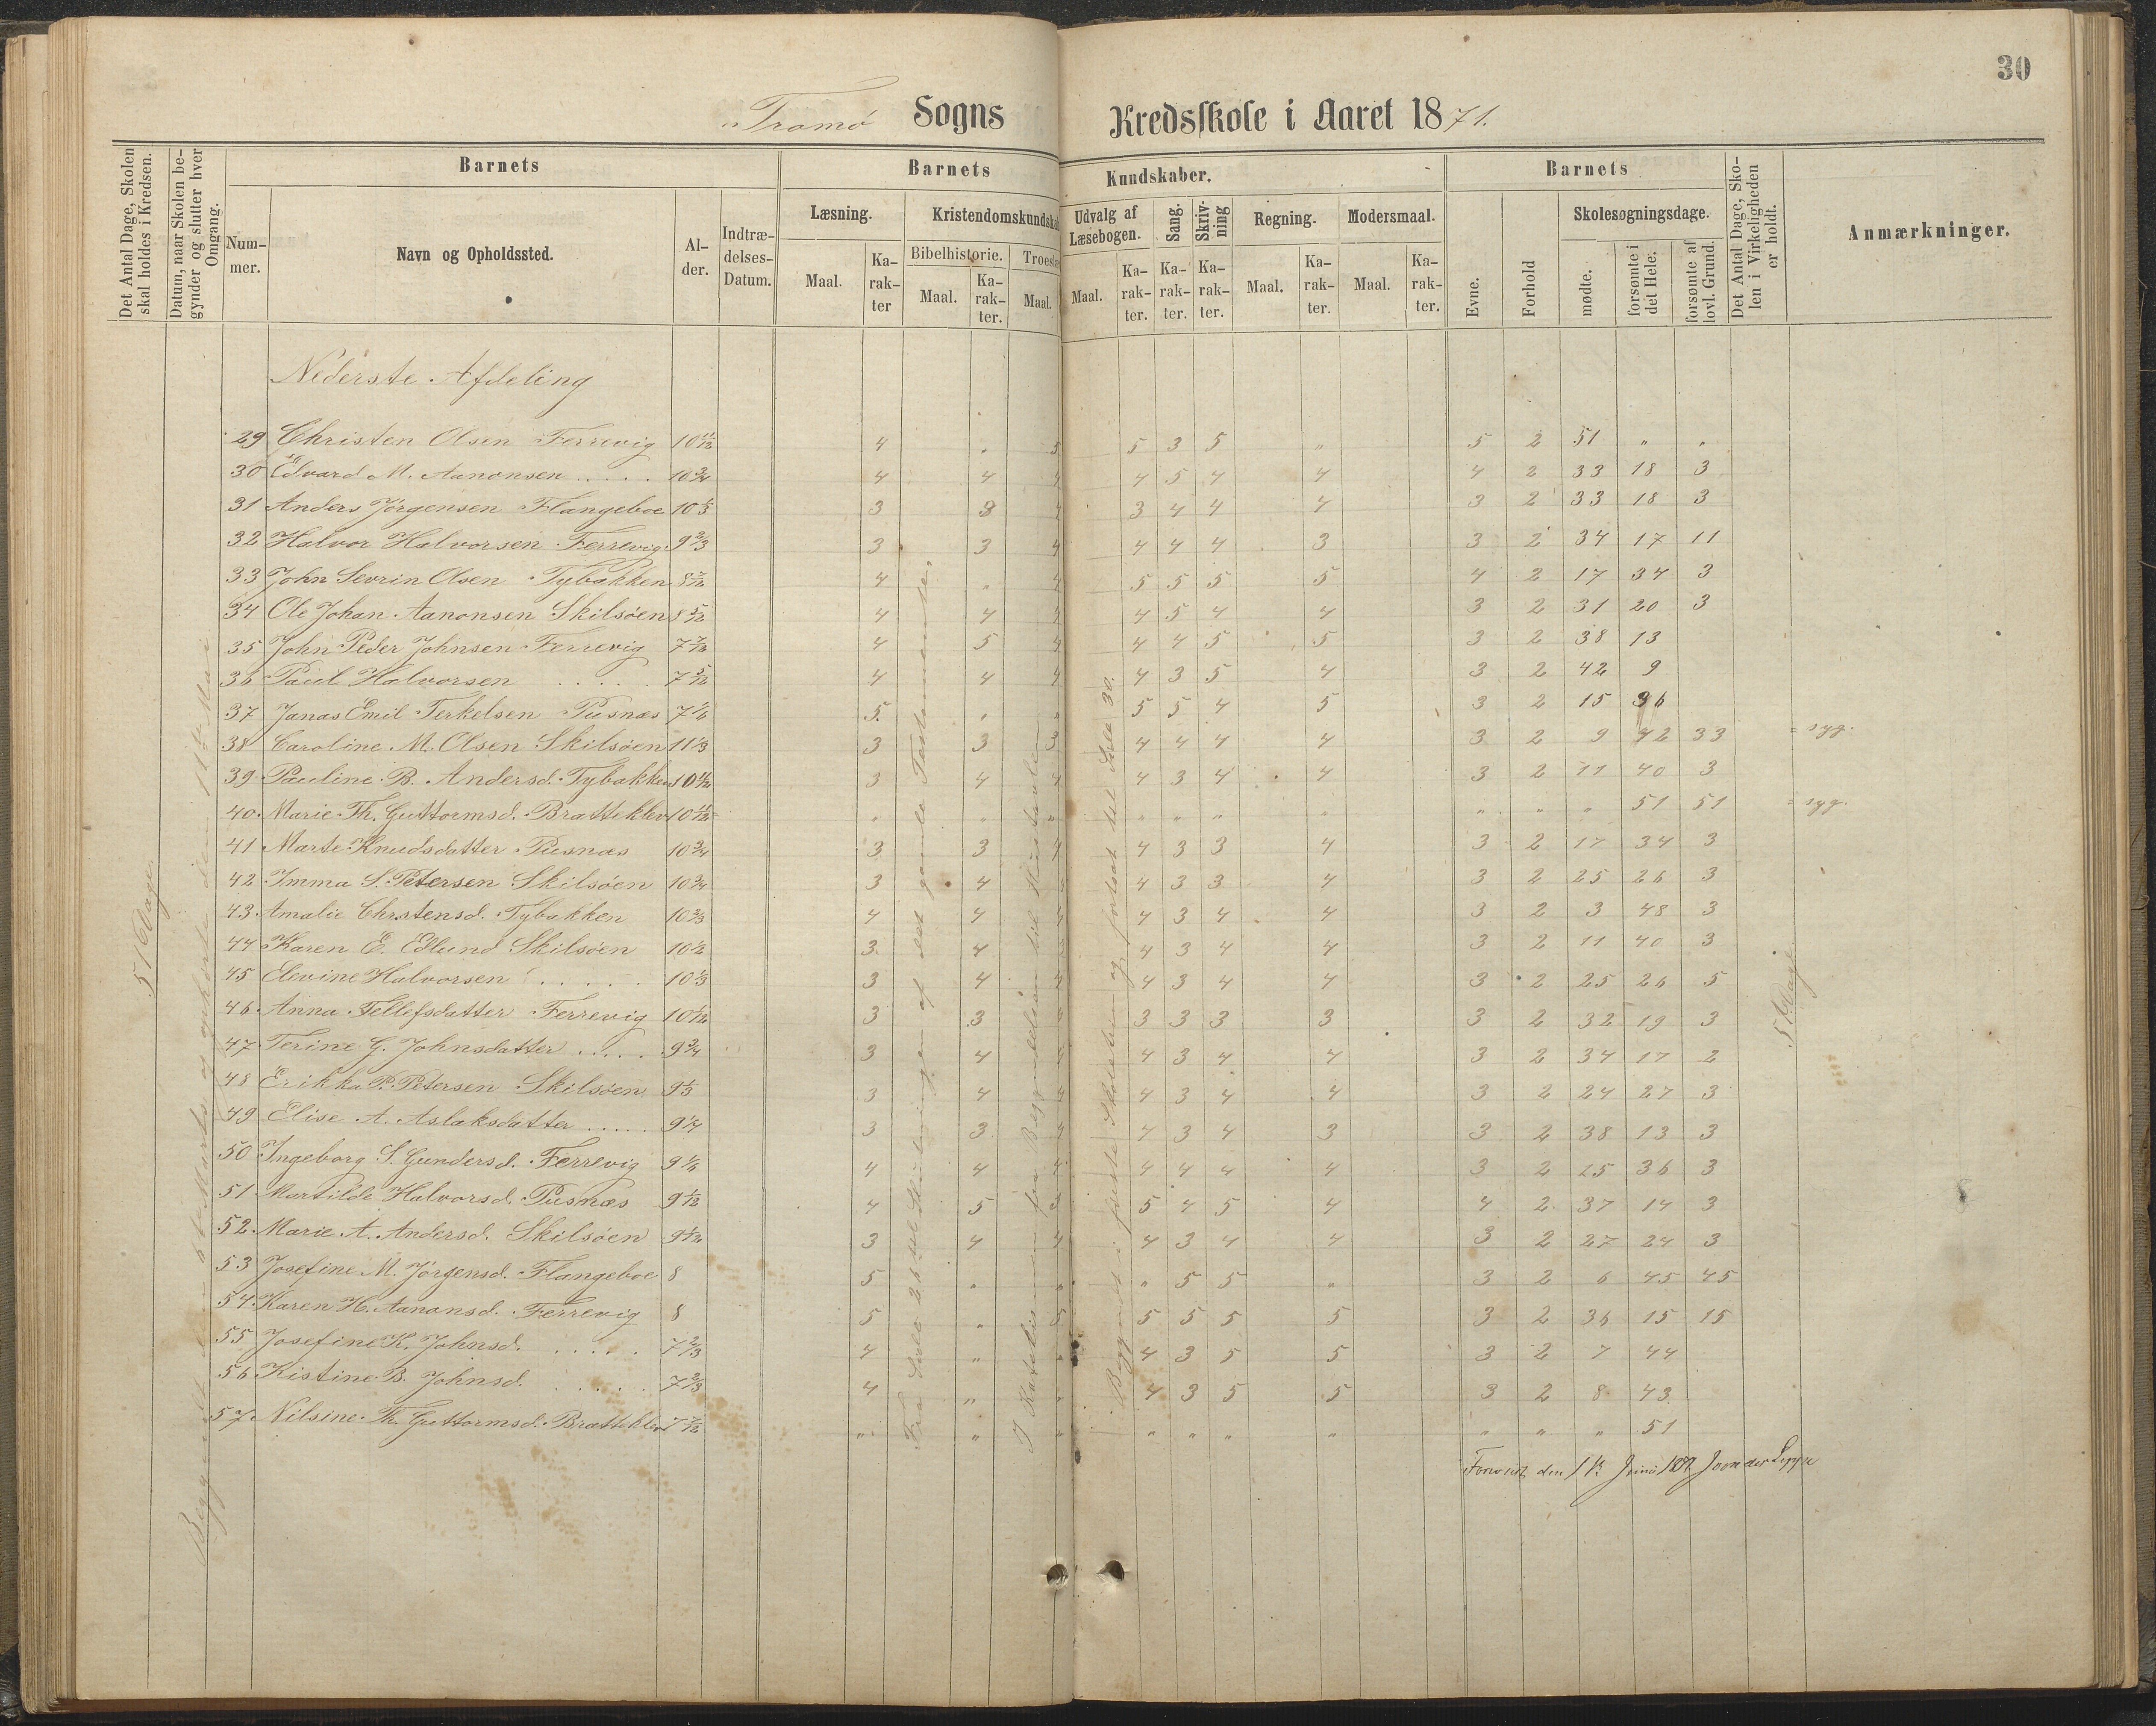 30
Tromø Sogns Kredsskole i Aaret 1871.
Det Antal Dage, Skolen skal holdes i Kredsen.
Datum, naar Skolen begynder og slutter hver Omgang.
Barnets
Barnets Kundskaber.
Barnets
Det Antal Dage, Skolen i Virkeligheden er holdt.
Anmærkninger.
Nummer.
Navn og Opholdssted.
Alder.
Indtrædelses-Datum.
Læsning.
Kristendomskundskab
Udvalg af Læsebogen.
Sang.
Skrivning
Regning.
Modersmaal.
Evne.
Forhold
Skolesøgningsdage.
Bibelhistorie.
Troes
Maal.
Karakter
Maal.
Karakter.
Maal.
Maal.
Karakter.
Karakter.
Karakter.
Maal.
Karakter.
Maal.
Karakter.
mødte.
forsømte i det Hele.
forsømte af lovl. Grund.
Nederste Afdeling
29 Christen Olsen Færrevig 10 11/12 4 „ 5 5 3 5 „ 5 2 51 „ „
30 Edvard M. Aanonsen ..... 10 3/4 4 4 4 4 5 4 4 4 2 33 18 3
31 Anders Jørgensen Flangeboe 10 1/3 3 3 4 3 4 4 4 3 2 33 18 3
32 Halvor Halvorsen Færrevig 9 2/3 3 3 4 4 4 4 3 3 2 34 17 11
33 John Sevrin Olsen Tybakken 8 7/12 4 „ 4 5 5 5 5 4 2 17 34 3
34 Ole Johan Aanonsen Skilsøen 8 5/12 4 4 4 4 5 4 4 3 2 31 20 3
35 John Peder Johnsen Færrevig 7 7/12 4 5 4 4 4 5 5 3 2 38 13
36 Paul Halvorsen ..... 7 5/12 4 4 4 4 3 5 4 3 2 42 9
37 Janas Emil Terkelsen Pusnæs 7 1/6 5 „ „ 5 5 4 5 3 2 15 36
38 Caroline M. Olsen Skilsøen 11 1/3 3 3 3 4 4 4 4 3 2 9 42 33 = syg.
39 Pauline B. Andersd. Tybakken 10 11/12 3 4 4 4 3 4 4 3 2 11 40 3
40. Marie Th. Guttormsd. Bratteklev 10 11/12 „ „ „ „ „ „ „ „ „ „ 51 51 = syg.
41 Marte Knudsdatter Pusnæs 10 3/4 3 3 4 4 3 3 4 3 2 17 34 3
42 Imma S. Petersen Skilsøen 10 3/4 3 4 4 4 3 3 4 3 2 25 26 3
43. Amalie Chrstensd. Tybakken 10 2/3 4 4 4 4 3 4 4 3 2 3 48 3
44 Karen E. Edlund Skilsøen 10 1/2 3 4 4 4 3 4 4 3 2 11 40 3
45 Elevine Halvorsen ..... 10 1/3 3 4 4 4 3 4 4 3 2 25 26 5
46. Anna Tellefsdatter Færrevig 10 1/12 3 3 3 3 3 3 3 3 2 32 19 3
47. Terine G. Johnsdatter ..... 9 3/4 3 4 4 4 3 4 4 3 2 34 17 2
48 Erikka P. Petersen Skilsøen 9 1/3 3 4 4 4 3 4 4 3 2 24 27 3
49 Elise A. Aslaksdatter ..... 9 1/4 3 3 4 4 3 4 3 3 2 38 13 3
50 Ingeborg S. Gundersd. Færrevig 9 1/6 4 4 4 4 4 4 4 3 2 15 36 3
51 Martilde Halvorsd. Pusnæs 9 1/12 4 5 3 5 4 5 4 4 2 37 14 3
52. Marie A. Andersd. Skilsøen 9 1/12 3 4 4 4 3 4 4 3 2 27 24 3
53 Josefine M. Jørgensd. Flangeboe 8 5 „ „ „ 5 5 „ 3 2 6 45 45
54. Karen H. Aanonsd. Færrevig 8 5 „ 5 5 5 5 5 3 2 36 15 15
55 Josefine K. Johnsd. ..... 7 2/3 4 „ „ 4 3 5 5 3 2 7 44
56 Kistine B. Johnsd. ..... 7 2/3 4 „ „ 4 3 5 5 3 2 8 43
57. Nilsine Th. Guttormsd. Bratteklev 7 7/12 „ „ „ „ „ „ „ „ „ „ 51
51 Dage
Marts og ophørte den 11te Mai
Fra Side 26 til Slutningen af det gamle Testamente.
I Katekismen fra Begyndelsen til
Begyndt i første Skolebog og fortsat til Side 30.
51 Dage
den 1ste Juni